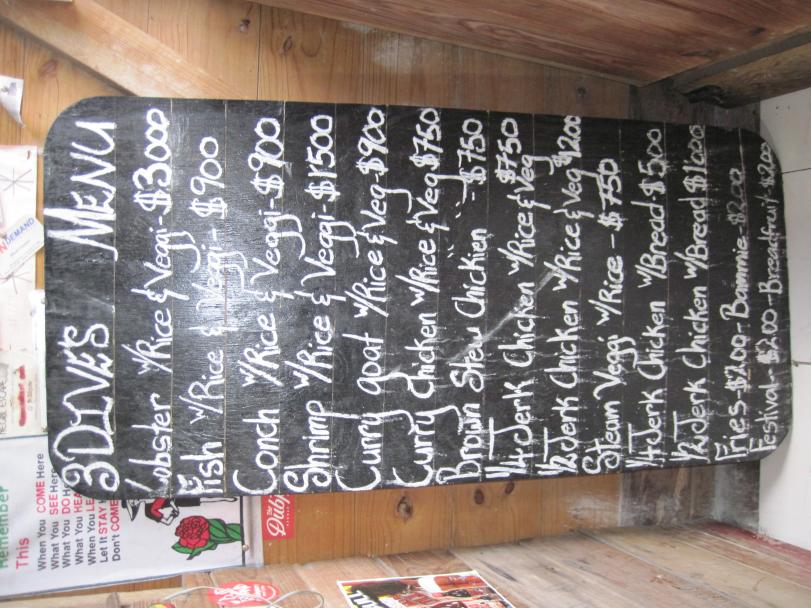 3 DIVE'S MENU
Lobster w/Rice & Veggi - $3000
Fish w/Rice & Veggi - $900
Conch w/Rice & Veggi - $900
Shrimp w/Rice & Veggi $1500
Curry goat w/Rice & Veg $900
Curry Chicken w/Rice & Veg $750
Brown Stew Chicken - $750
1/4 Jerk Chicken w/Rice & Veg $750
1/2 Jerk Chicken w/Rice & Veg $1200
Steam Veggi w/Rice - $750
1/4 Jerk Chicken w/Bread - $500
1/2 Jerk Chicken w/Bread $1000
Fries - $200 - Bammie - $200
Festival - $200 - Breadfruit $200
Remember
This
When You COME Here
What You SEE Here
What You DO
What You HEA
When You LE
Let It STAY
Don't COME
DEMAND
The